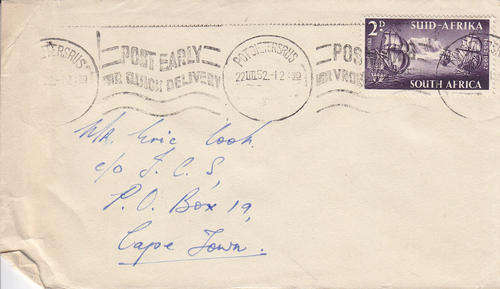 POTGIETERSRUS
POST EARLY
FOR QUICK DELIVERY
POTGIETERSRUS
22 III 52 - 12
POS
VIR VROE
2D SUID-AFRIKA
SOUTH AFRICA
Eric Cook,
c/o J.C.S,
P.O. Box 19,
Cape Town.